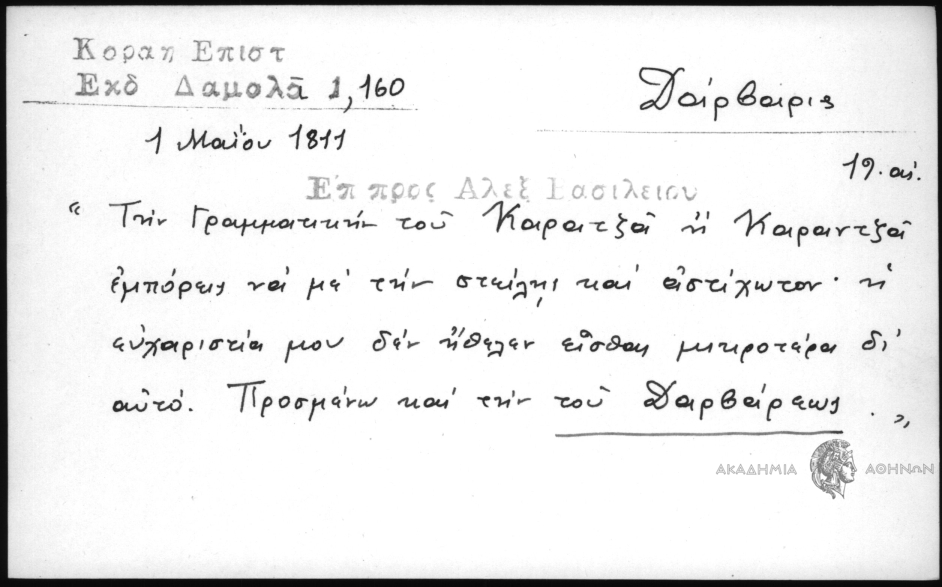 Κοραη Επιστ
Εκδ Δαμαλᾶ 1,160
Δάρβαρις
1 Μαΐου 1811
19. αἰ.
Ἐπ προς Αλεξ Βασιλειου
“ Τὴν Γραμματικὴν τοῦ Καρατζᾶ ἢ Καραντζᾶ
ἐμπόρεις νὰ μὲ τὴν στείλῃς καὶ ἀστάχωτον· ἡ
εὐχαριστία μου δὲν ἤθελεν εἶσθαι μικροτέρα δι'
αὐτό. Προσμένω καὶ τὴν τοῦ Δαρβάρεως . „
ΑΚΑΔΗΜΙΑ ΑΘΗΝΩΝ